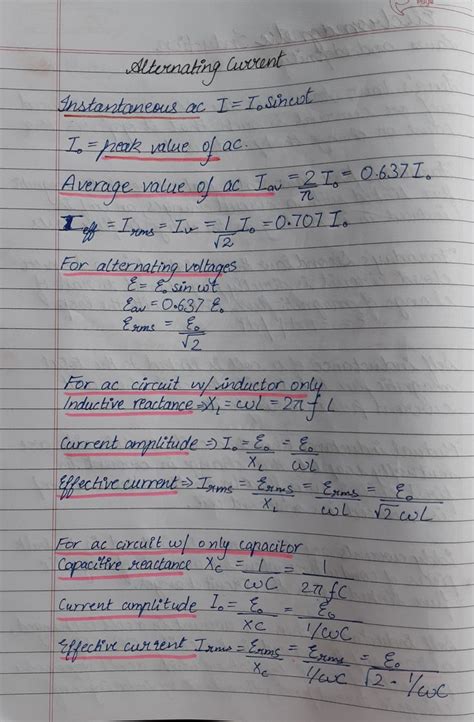 Alternating Current
Instantaneous ac I = I₀ sinωt
I₀ = peak value of ac.
Average value of ac Iav = 2/π I₀ = 0.637 I₀
Ieff = Irms = Iv = 1/√2 I₀ = 0.707 I₀
For alternating voltages
ℰ = ℰ₀ sin ωt
ℰav = 0.637 ℰ₀
ℰrms = ℰ₀/√2
For ac circuit w/ inductor only
Inductive reactance ⇒ XL = ωL = 2πfL
Current amplitude ⇒ I₀ = ℰ₀/XL = ℰ₀/ωL
Effective current ⇒ Irms = ℰrms/XL = ℰrms/ωL = ℰ₀/√2 ωL
For ac circuit w/ only capacitor
Capacitive reactance XC = 1/ωC = 1/2πfC
Current amplitude I₀ = ℰ₀/XC = ℰ₀/1/ωC
Effective current Irms = ℰrms/XC = ℰrms/1/ωC = ℰ₀/√2 · 1/ωC